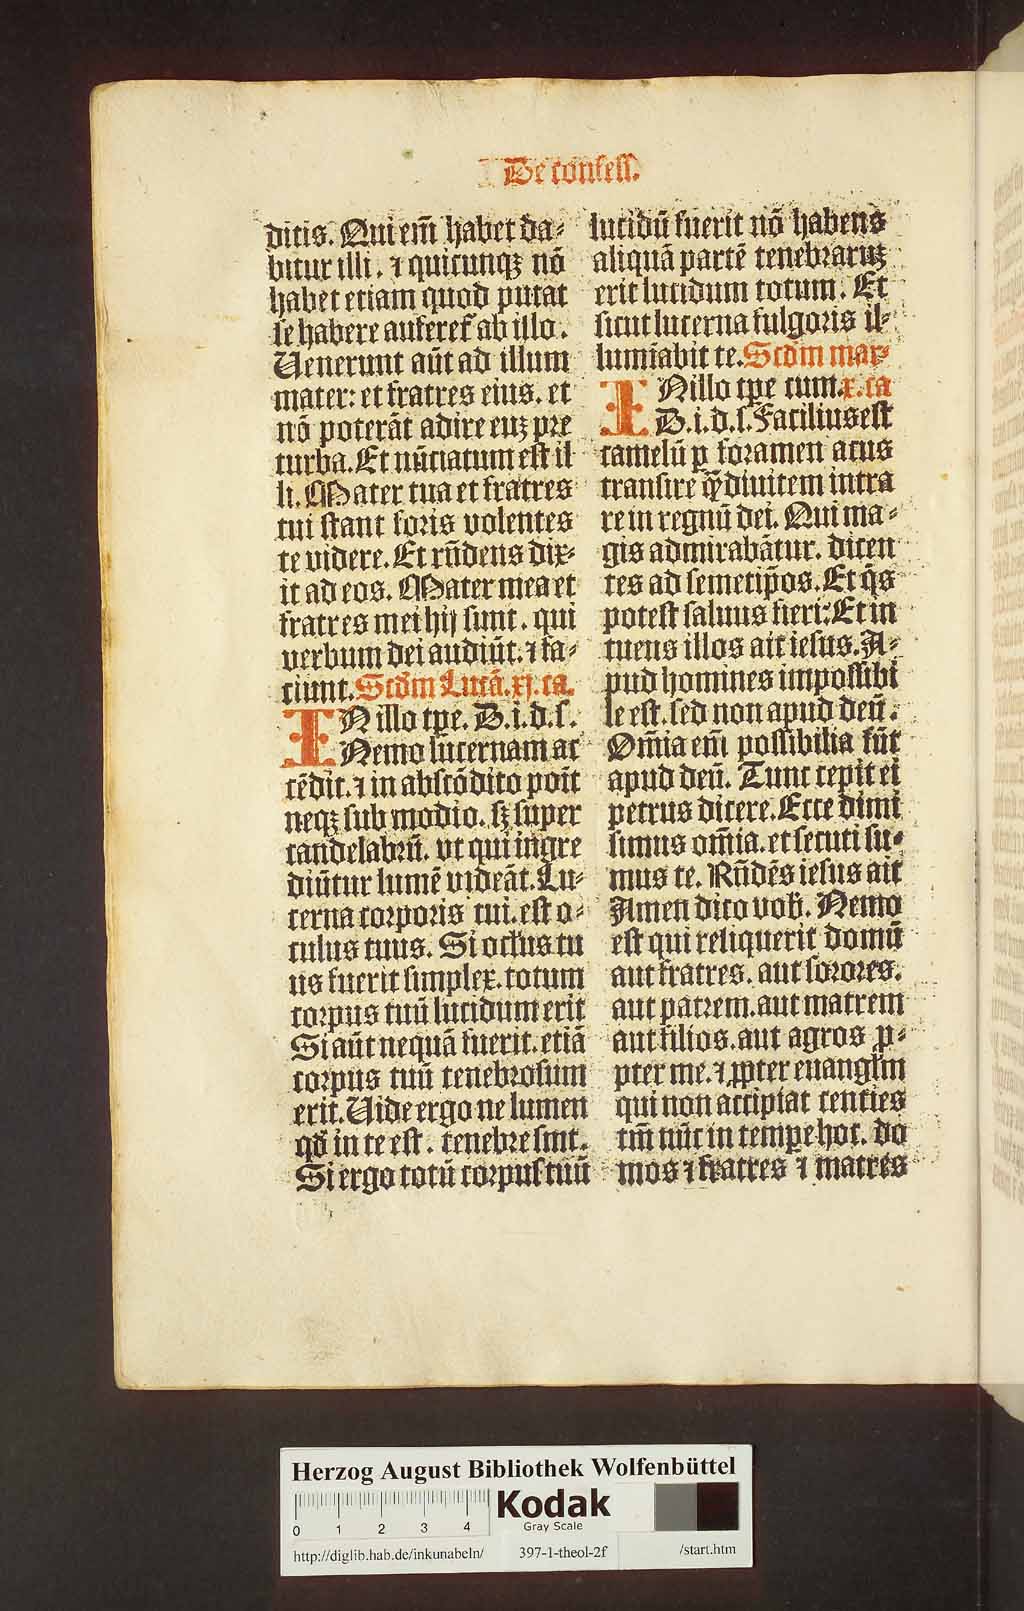 De confess.
ditis. Qui em̄ habet da⸗
bitur illi. ⁊ quicunqꝫ nō
habet etiam quod putat
se habere auferet᷑ ab illo.
Uenerunt aūt ad illum
mater: et fratres eius. et
nō poterāt adire euꝫ pre
turba. Et nūciatum est il
li. Mater tua et fratres
tui stant foris volentes
te videre. Et rn̄dens dix⸗
it ad eos. Mater mea et
fratres mei hij sunt. qui
verbum dei audiūt. ⁊ fa⸗
ciunt. Scd̄m Lucā. xj. ca.
IN illo tpe. D. i. d. s.
Nemo lucernam ac
cēdit. ⁊ in abscōdito poīt
neqꝫ sub modio. sꝫ super
candelabrū. vt qui ingre
diūtur lumē videāt. Lu⸗
cerna corporis tui. est o⸗
culus tuus. Si oclus tu
us fuerit simplex. totum
corpus tuū lucidum erit
Si aūt nequā fuerit. etiā
corpus tuū tenebrosum
erit. Uide ergo ne lumen
qd̄ in te est. tenebre sint.
Si ergo totū corpus tuū
lucidū fuerit nō habens
aliquā partē tenebraruꝫ
erit lucidum totum. Et
sicut lucerna fulgoris il⸗
lumīabit te. Scd̄m mar⸗
IN illo tpe cum. x. ca
D. i. d. s. Facilius est
camelū ꝑ foramen acus
transire q̄ȝ diuitem intra
re in regnū dei. Qui ma⸗
gis admirabātur. dicen
tes ad semetip̄os. Et q̄s
potest saluus fieri: Et in
tuens illos ait iesus. A⸗
pud homines impossibi
le est. sed non apud deū.
Om̄ia em̄ possibilia sūt
apud deū. Tunc cepit ei
petrus dicere. Ecce dimi
simus om̄ia. et secuti su⸗
mus te. Rn̄dēs iesus ait
Amen dico vob̄. Nemo
est qui reliquerit domū
aut fratres. aut sorores.
aut patrem. aut matrem
aut filios. aut agros ꝓ⸗
pter me. ⁊ ꝓpter euangl̄m
qui non accipiat centies
tm̄ nūc in tempe hoc. do
mos ⁊ fratres ⁊ matres
Herzog August Bibliothek Wolfenbüttel
Kodak
Gray Scale
0 1 2 3 4
http://diglib.hab.de/inkunabeln/ 397-1-theol-2f /start.htm